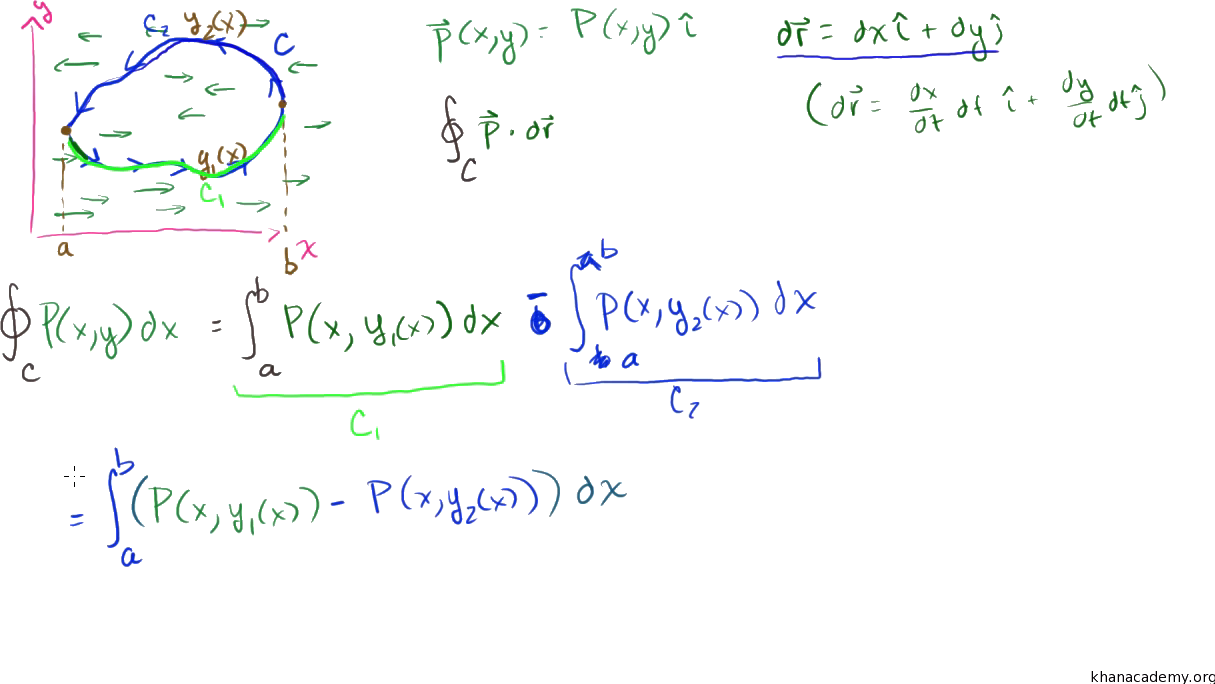 y
C₂ y₂(x) C
y₁(x)
C₁
a b x
P⃗(x,y) = P(x,y) î
dr⃗ = dx î + dy ĵ
(dr⃗ = dx/dt dt î + dy/dt dt ĵ)
∮_C P⃗ · dr⃗
∮_C P(x,y) dx = ∫_a^b P(x, y₁(x)) dx - ∫_a^b P(x, y₂(x)) dx
C₁ C₂
= ∫_a^b (P(x, y₁(x)) - P(x, y₂(x))) dx
khanacademy.org